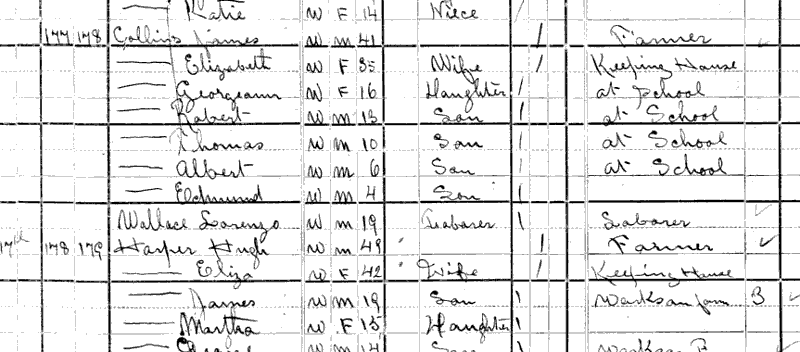 Katie W F 14 Niece /
177 178 Collins James W M 41 / Farmer
— Elizabeth W F 35 Wife / Keeping House
— Georgeann W F 16 Daughter / at School
— Robert W M 13 Son / at School
— Thomas W M 10 Son / at School
— Albert W M 6 Son / at School
— Edmund W M 4 Son /
Wallace Lorenzo W M 19 Laborer / Laborer
178 179 Harper Hugh W M 49 / Farmer ✓
— Eliza W F 42 Wife / Keeping House
— James W M 19 Son / Works on farm 3
— Martha W F 15 Daughter /
W M 14 Son /